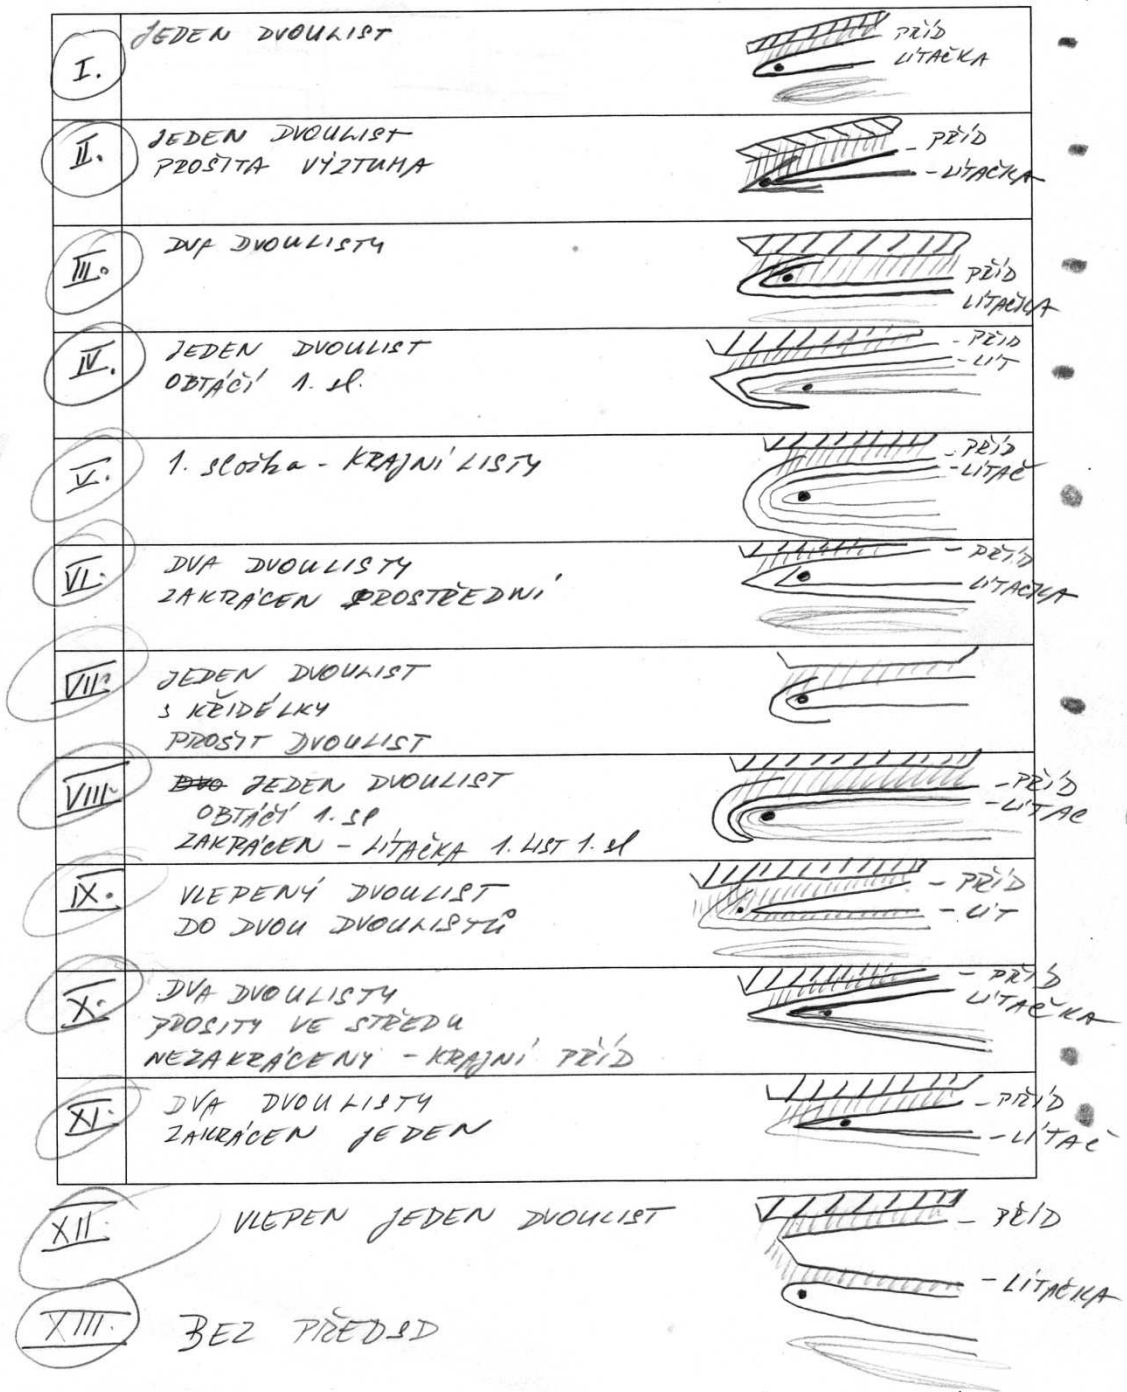 I. JEDEN DVOULIST
PŘÍD
LÍTAČKA
II. JEDEN DVOULIST
PROŠITA VÝZTUHA
- PŘÍD
- LÍTAČKA
III. DVA DVOULISTY
PŘÍD
LÍTAČKA
IV. JEDEN DVOULIST
OBTÁČÍ 1. sl.
- PŘÍD
- LÍT
V. 1. složka - KRAJNÍ LISTY
- PŘÍD
- LÍTAČ
VI. DVA DVOULISTY
ZAKRÁCEN PROSTŘEDNÍ
- PŘÍD
LÍTAČKA
VII. JEDEN DVOULIST
S KŘIDÉLKY
PROŠIT DVOULIST
VIII. JEDEN DVOULIST
OBTÁČÍ 1. sl
ZAKRÁCEN - LÍTAČKA 1. LIST 1. sl
- PŘÍD
- LÍTAČ
IX. VLEPENÝ DVOULIST
DO DVOU DVOULISTŮ
- PŘÍD
- LÍT
X. DVA DVOULISTY
PROŠITY VE STŘEDU
NEZAKRÁCENY - KRAJNÍ PŘÍD
- PŘÍD
LÍTAČKA
XI. DVA DVOULISTY
ZAKRÁCEN JEDEN
- PŘÍD
- LÍTAČ
XII. VLEPEN JEDEN DVOULIST
- PŘÍD
- LÍTAČKA
XIII. BEZ PŘEDSD